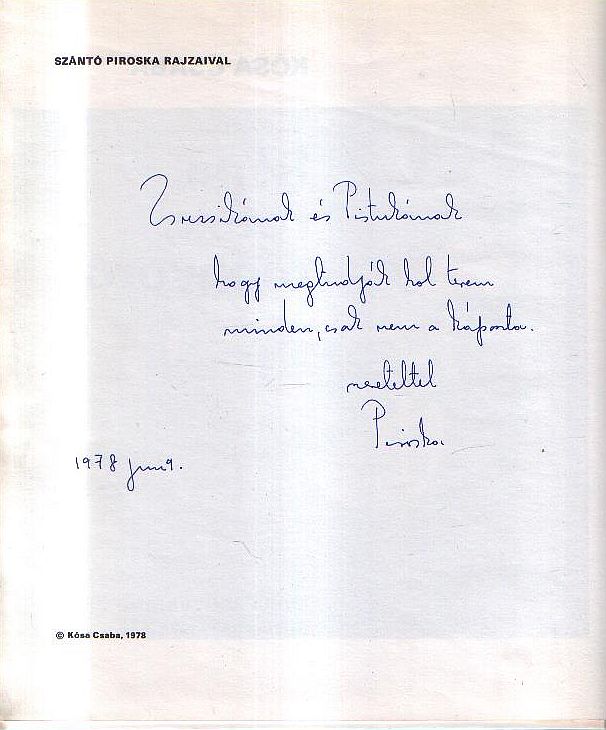 SZÁNTÓ PIROSKA RAJZAIVAL
Zsuzsikának és Pistukának
hogy megtudják hol terem
minden, csak nem a káposzta.
szeretettel
Piroska.
1978 jun 9.
© Kósa Csaba, 1978